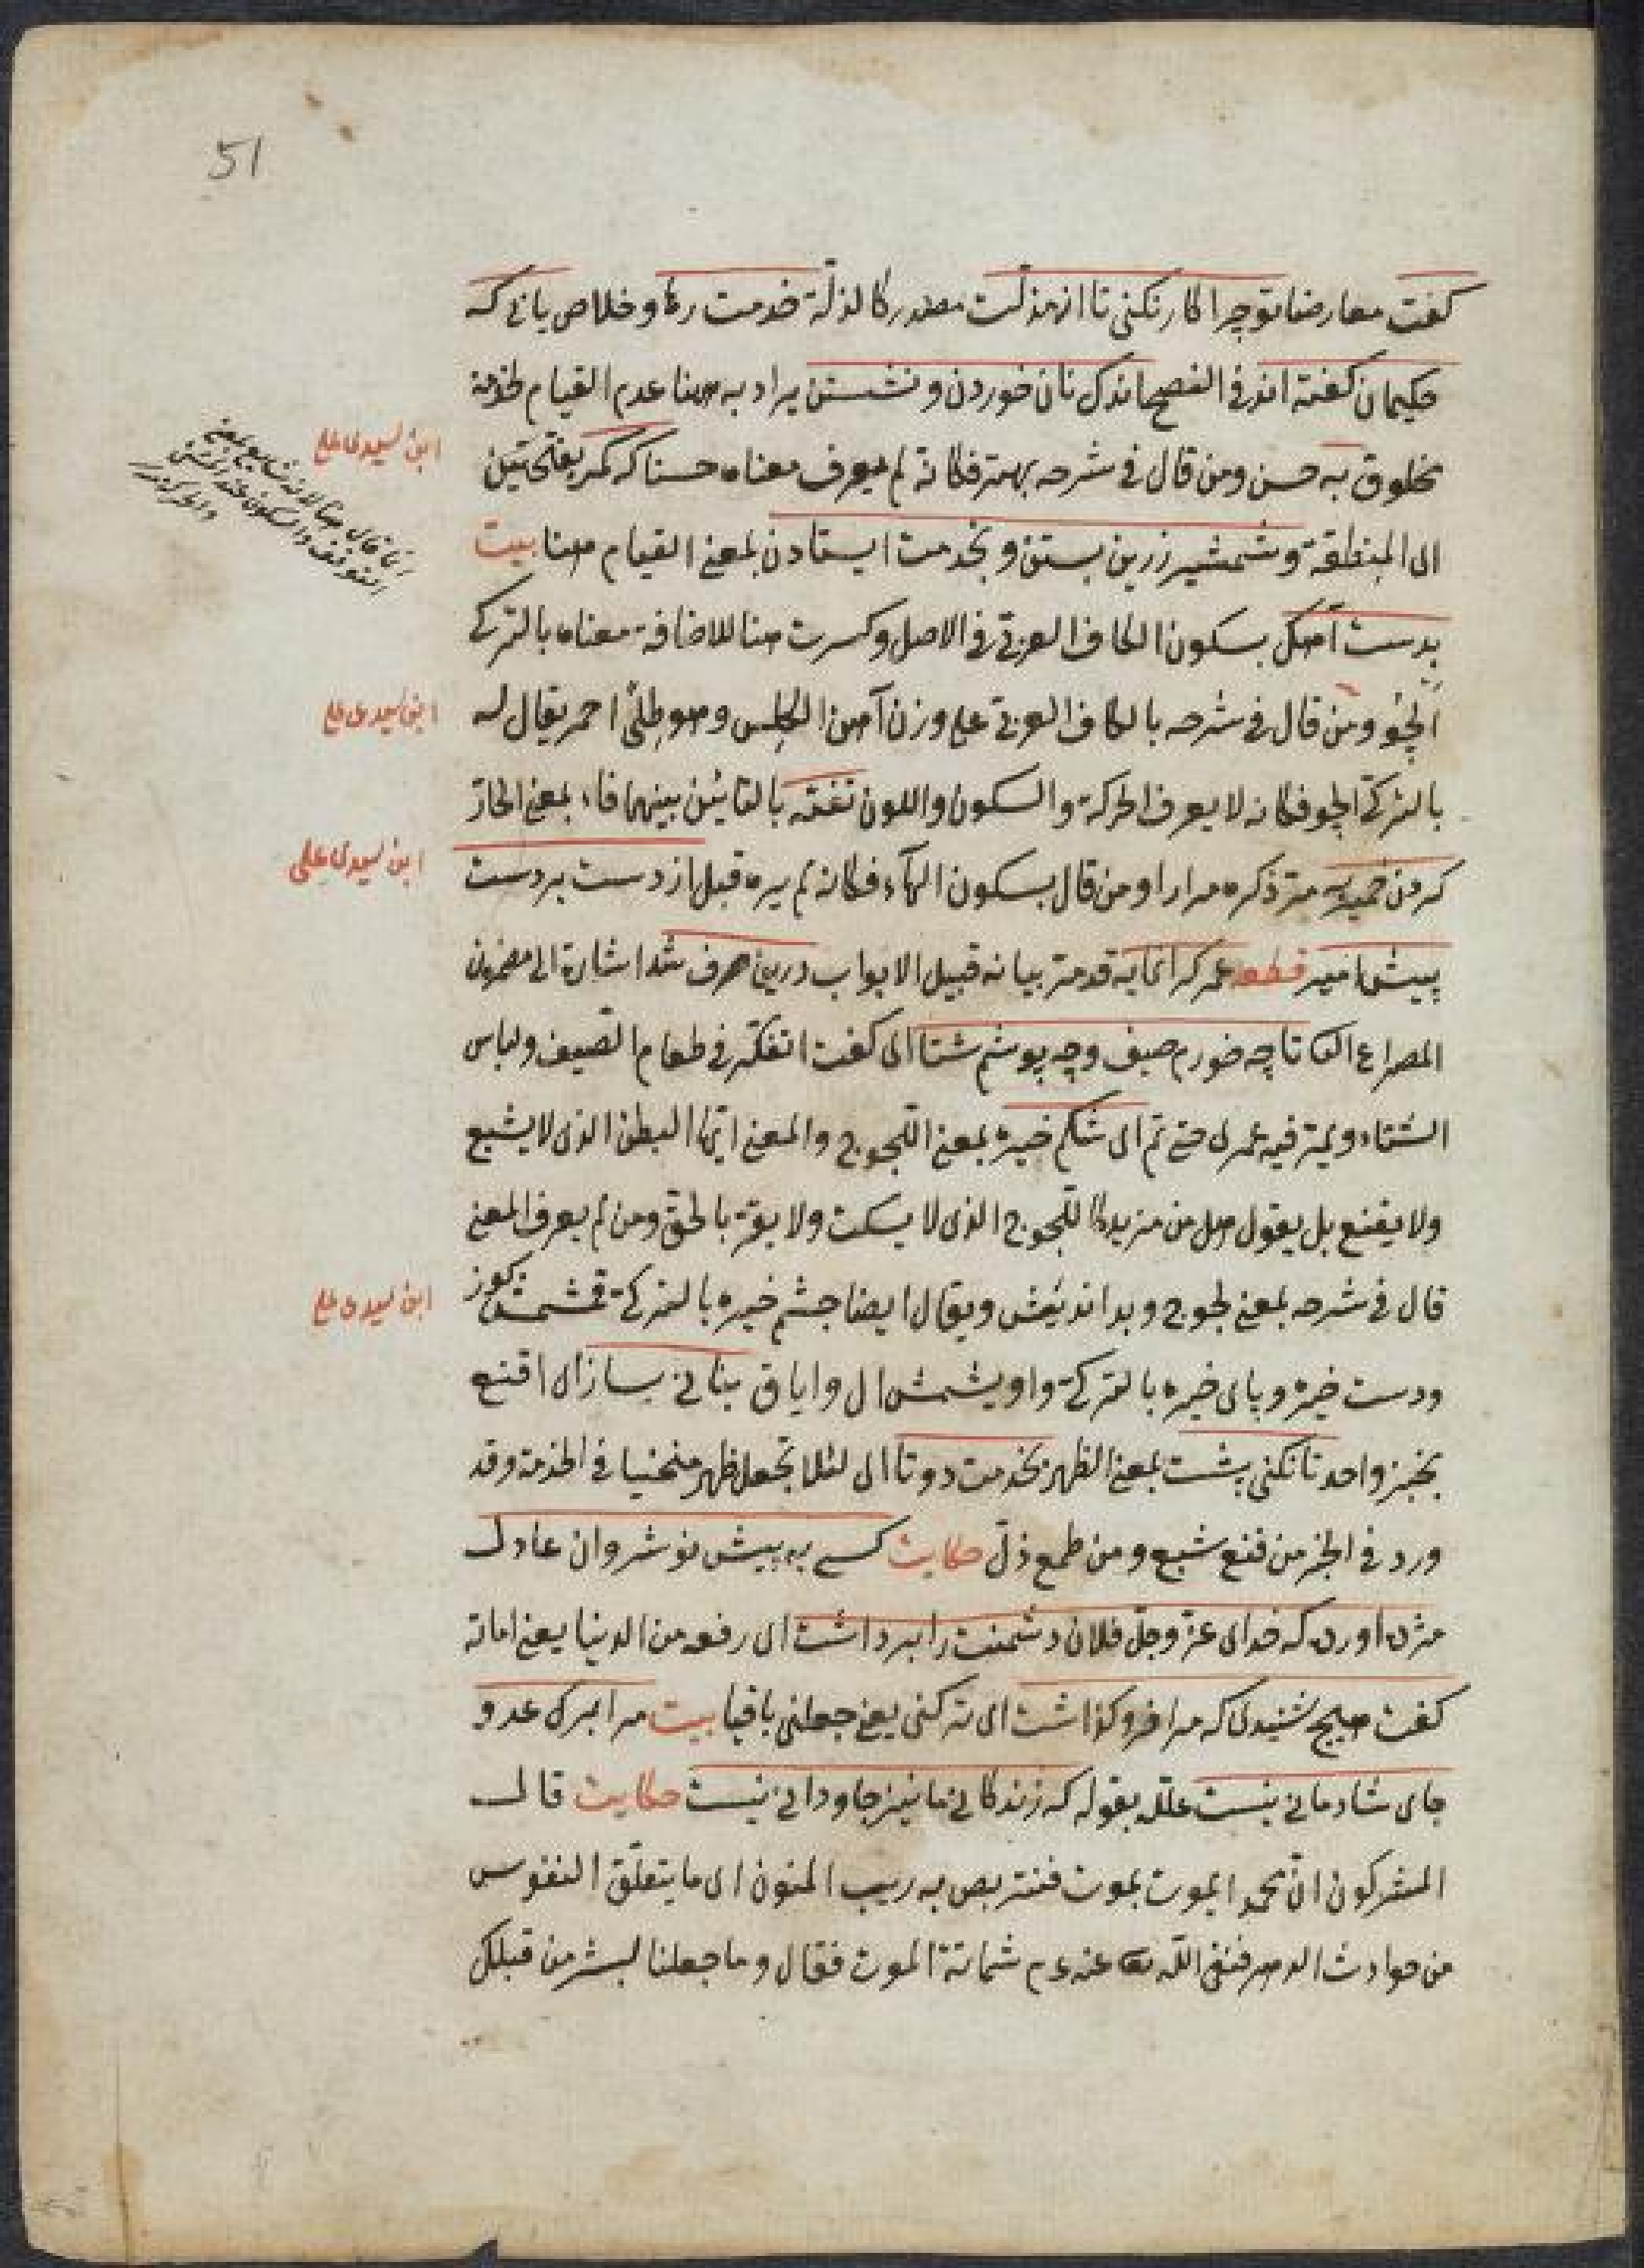 51
كفت معارضا تو چرا كار نكنى تا از مذلت مصدر كالذلة خدمت رها و خلاص يابى كه
حكيمان كفته اند فى النصح اندك نان خوردن و نشستن يراد به هنا عدم القيام لخدمة
مخلوق به حسن ومن قال فى شرحه بهمتر فكانه لم يعرف معناه حسنا كه كمر بفتحتين
اى المنطقة و شمشير زرين بستن و بخدمت ايستادن بمعنى القيام هنا بيت
بدست آهك بسكون الكاف العربى فى الاصل وكسرت هنا للاضافة معناه بالتركى
آلچو ومن قال فى شرحه بالكاف العربى على وزن آهن الكلس وهو طلى احمر يقال له
بالتركى الچو فكانه لا يعرف الحركة والسكون واللون تفته بالتائين بينهما فاء بمعنى الحار
كردن خمير مر ذكره مرارا ومن قال بسكون الهاء فكانه لم يره قبل از دست بر دست
پيش امير قطعه عمر كرانمايه قد مر بيانه قبيل الابواب درين صرف شد اشارة الى مضمون
المصراع تا چه خورم صيف و چه پوشم شتا اى كفت اتفكر فى طعام الصيف ولباس
الشتاء ويمر فيه عمرى حتى تم اى شكم خيره بمعنى اللجوج والمعنى ايها البطن الذى لا يشبع
ولا يقنع بل يقول هل من مزيد كاللجوج الذى لا يسكت ولا يقر بالحق ومن لم يعرف المعنى
قال فى شرحه بمعنى لجوج و بد انديش ويقال ايضا چشم خيره بالتركى قمشمش كوز
ودست خيره و پاى خيره بالتركى و اويشمش ال و اياق بنانى بساز اى اقنع
بخبز واحد تا نكنى پشت بمعنى الظهر بخدمت دوتا اى لئلا تجعل ظهر منحنيا فى الخدمة وقد
ورد فى الخبر من قنع شبع ومن طمع ذل حكايت كسى به پيش نوشروان عادل
مژده آورد كه خداى عز وجل فلان دشمنت را برداشت اى رفعه من الدنيا يعنى اماته
كفت هيچ شنيدى كه مرا فرو كذاشت اى تركنى يعنى جعلنى باقيا بيت مرا بمرك عدو
جاى شادمانى نيست علله بقوله كه زندكانى ما نيز جاودانى نيست حكايت قال
المشركون ان محمدا يموت بموت فنتربص به ريب المنون اى ما يتعلق النفوس
من حوادث الدهر فنفى الله تعالى عنه عم شماتة الموت فقال وما جعلنا لبشر من قبلك
ابن سيدى على
ابن سيدى على
ابن سيدى على
ابن سيدى على